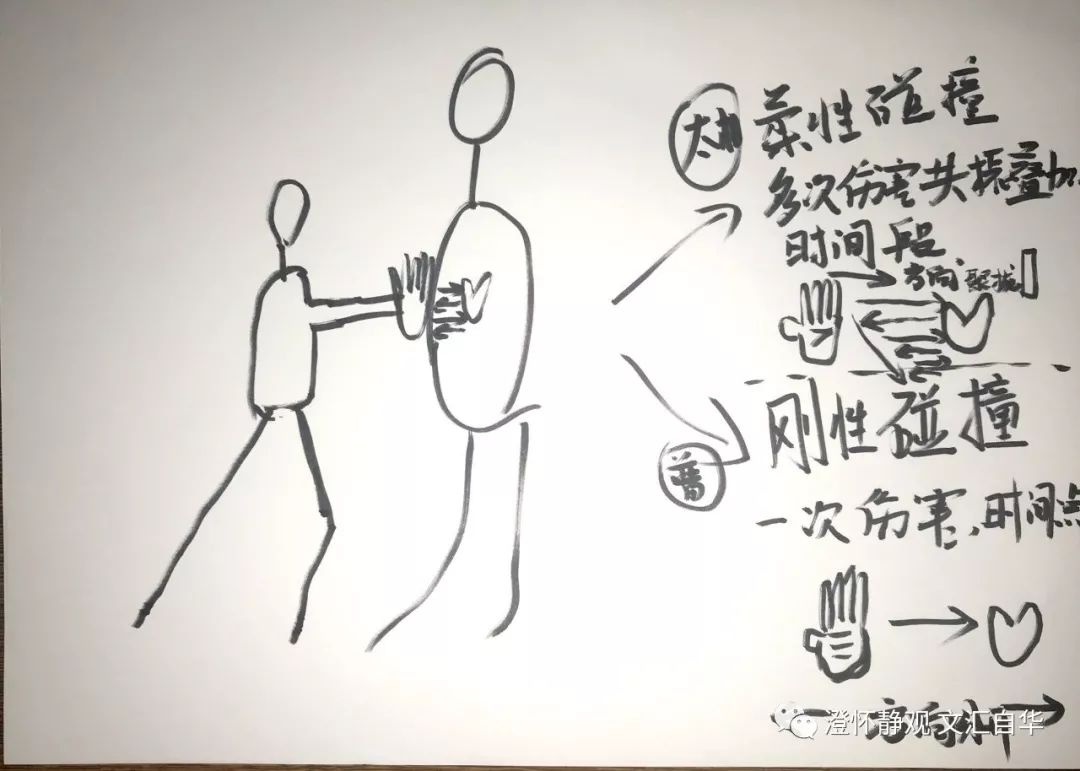 太
柔性碰撞
多次伤害共振叠加
时间段
方向
刚性碰撞
普
一次伤害,时间点
方向
澄怀静观 文汇自华